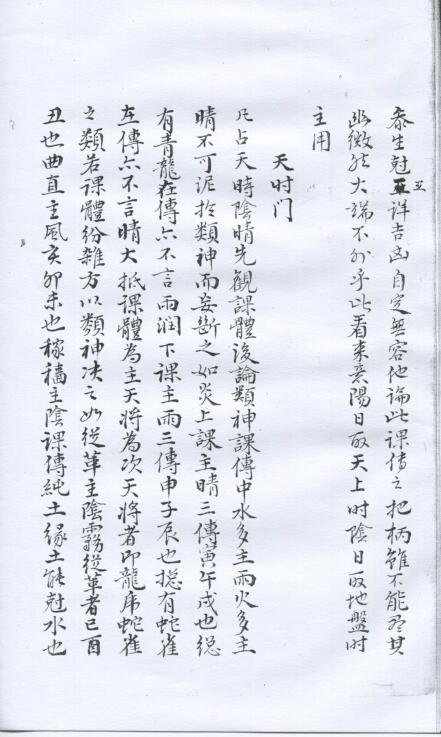 泰生尅互詳吉凶自定無容他論此課傳之把柄雖不能尽其
幽微然大端不外乎此看来意陽日取天上时陰日取地盤时
主用
天时门
凡占天時陰晴先観課體後論類神課傳中水多主雨火多主
晴不可泥於類神而妄斷之如炎上課主晴三傳寅午戌也縂
有青龍在傳亦不言雨润下課主雨三傳申子辰也縂有蛇雀
在傳亦不言晴大抵課體為主天将為次天将者即龍虎蛇雀
之類若課體紛雜方以類神决之如從革主陰霧從革者巳酉
丑也曲直主風亥卯未也稼穡主陰課傳純土缘土能尅水也